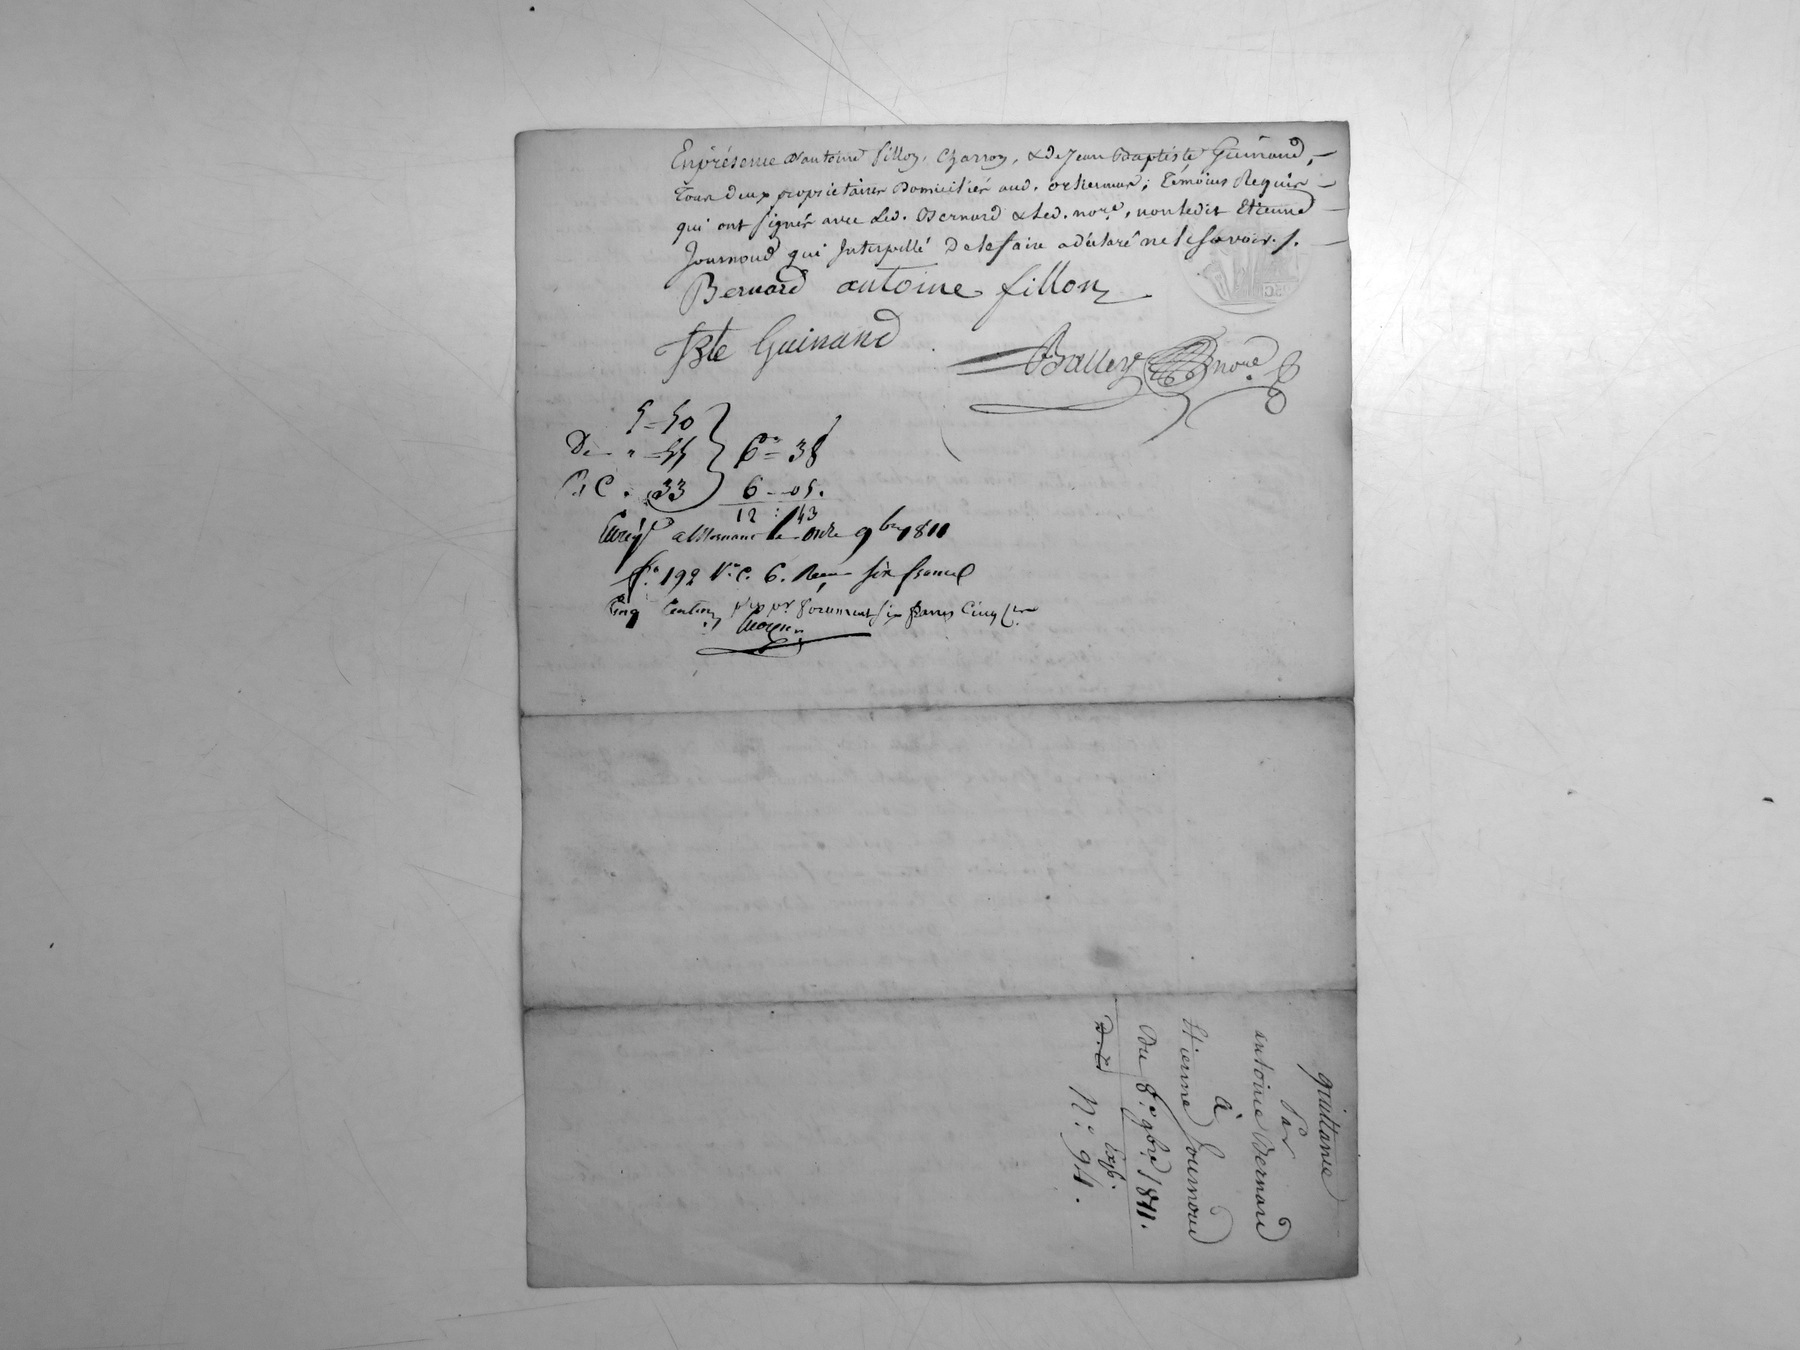 En présence d'antoine fillon, Charron, & de Jean Baptiste Guinand,
tous deux proprietaires Domiciliés aud. témoins Requis
qui ont signés avec Led. Bernard & Led. nore. non ledit Etienne
Journoud qui Interpellé De le faire a déclaré ne le savoir./.
Bernard antoine fillon
JBte Guinand
Balley nore
5 = 50
De " = 55
6" = 38
C. 33
6 - 05.
12 : 43
Enregé a Mornant le onze 9bre 1811
f.° 192 V.° C. 6. Reçu six francs
Cinq Centimes six francs Cinq
quittance
Par
antoine Bernard
à
Etienne Journoud
Du 8.e 9bre 1811.
Exp.
N.° 94.